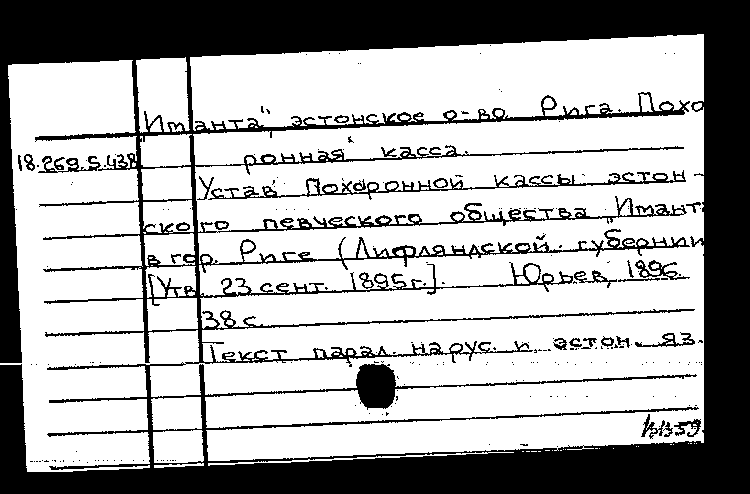 „Иманта", эстонское о-во. Рига. Похо
18.269.5.438 ронная касса.
Устав Похоронной кассы эстон-
ского певческого общества „Иманта
в гор. Риге (Лифляндской губернии
[Утв. 23 сент. 1895 г.]. Юрьев, 1896.
38 с.
Текст парал. на рус. и эстон. яз.